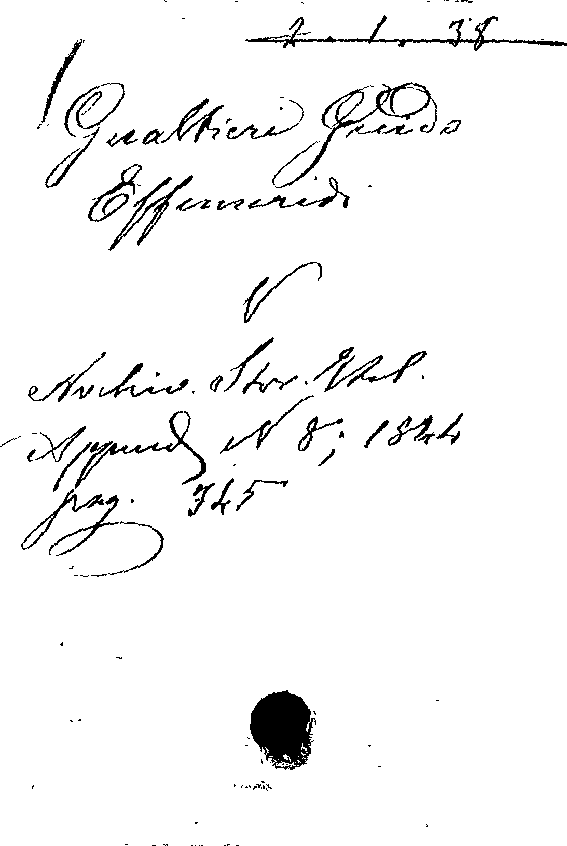 2 - 1 - 38
Gualtieri Guido
Effemeridi
V
Archiv. Stor. Ital.
Append. N 8; 1844
pag. 345